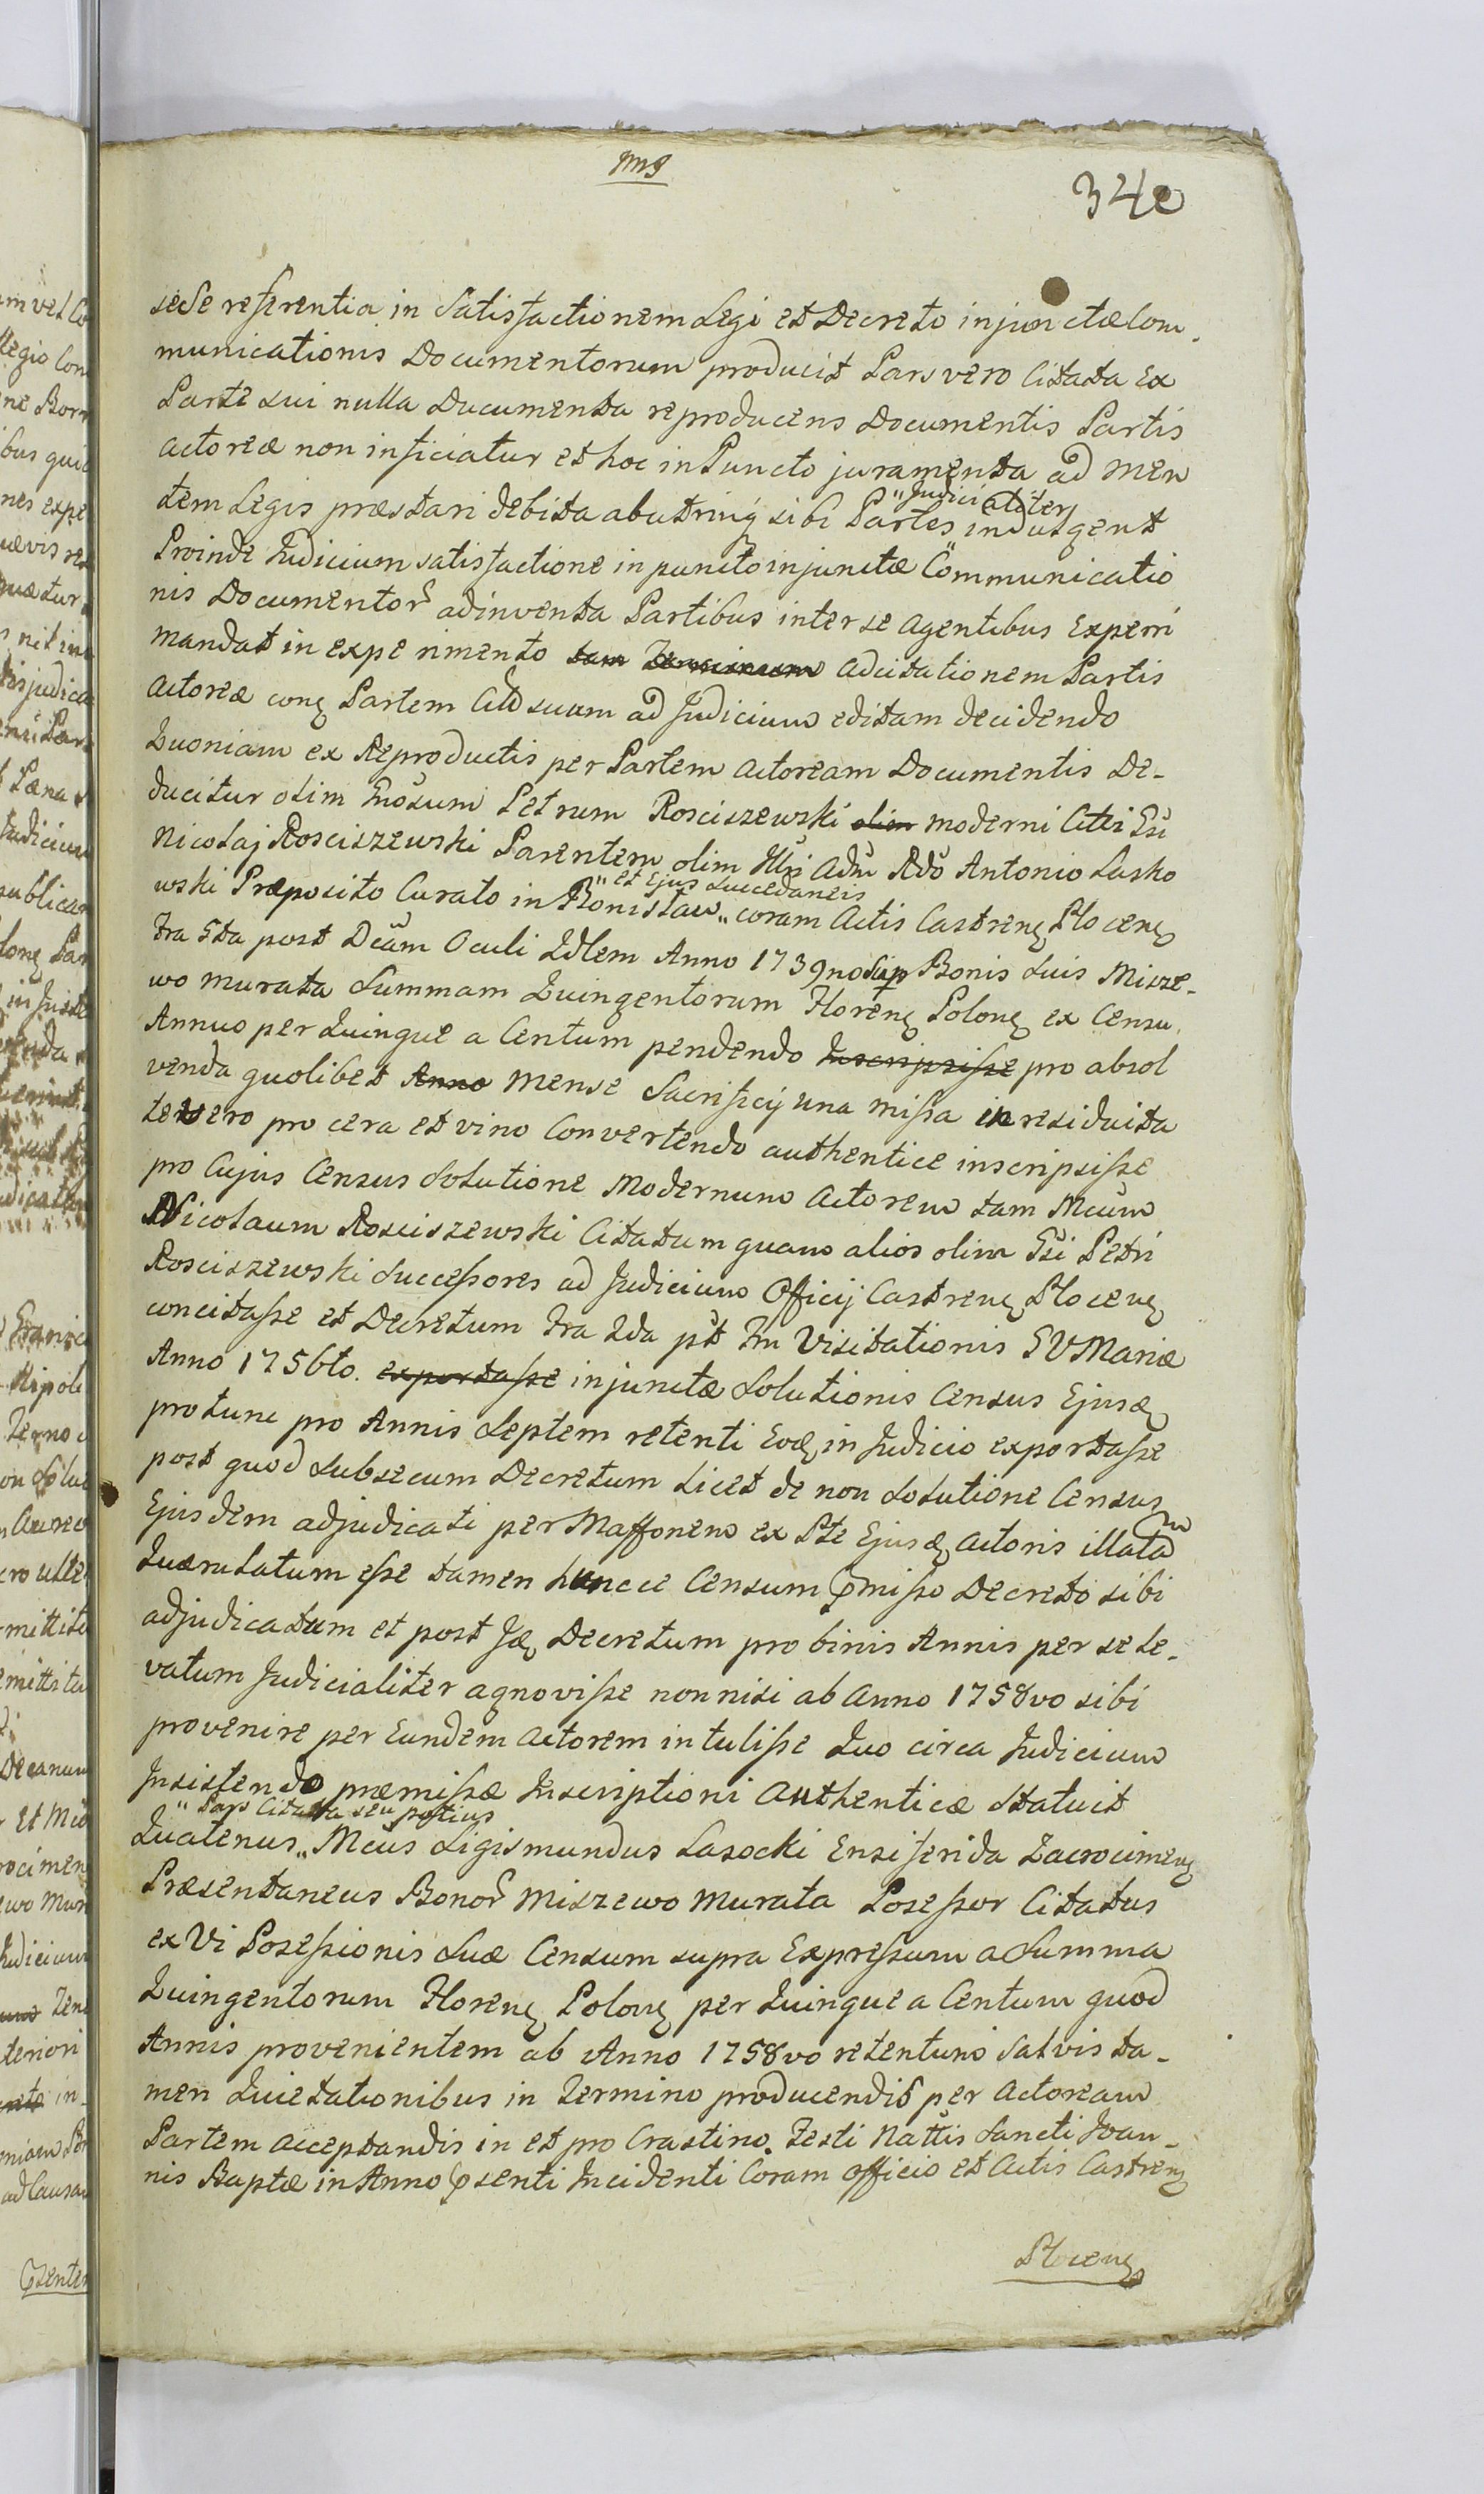 340
sese referentia in Satisfactionem Legi et Decreto injunctæ Com
municationis Documentorum producit Pars vero Citata Ex
Parte sui nulla Documenta reproducens Documentis Partis
Actoreæ non inficiatur et hoc in Puncto juramenta ad men
"Judicialiter
tem Legis præstari debita abutrinq sibi Partes" indulgent
Proinde Judicium satisfactione in puncto injunctæ Communicatio
nis Documentor adinventa Partibus inter se agentibus Experiri
mandat in experimento tam Terminum adcitationem Partis
Actoreæ conq Partem Cittd suam ad Judicium editam decidendo
Quoniam ex Reproductis per Partem Actoream Documentis De-
ducitur olim Gnosum Petrum Rosciszewski olim moderni Citti Gsi
Nicolaj Rosciszewski Parentem olim Illri Adm Rdo Antonio Lasko
"et Ejus Succedaneis
wski Præposito Curato in Bonislaw" coram Actis Castrenq Plocenq
Fra 5ta post Dcam Oculi Qdlem Anno 1739no Sup Bonis Suis Misze-
wo Murata Summam Quingentorum Florenq Polonq ex Censu
Annuo per Quinque a Centum pendendo Inscripsisse pro absol
venda quolibet Anno Mense Sacrificij una missa in residuita
te vero pro cera et vino Convertendo authentice inscripsisse
pro Cujus Census Solutione Modernum Actorem tam Mcum
Nicolaum Rosciszewski Citatum quam alios olim Gsi Petri
Rosciszewski Successores ad Judicium Officij Castrenq Plocenq
concitasse et Decretum Fra 2da pt Fm Visitationis BVMariæ
Anno 1756to. exportasse injunctæ Solutionis Census Ejusq
protunc pro Annis Septem retenti Eoq in Judicio exportasse
post quod Subsecum Decretum licet de non Solutione Census
Ejusdem adjudicati per Maffonem ex Pte Ejusq Actoris illatam
Quærulatum esse tamen huncce Censum pmisso Decreto sibi
adjudicatum et post Jq Decretum pro binis Annis per se le-
vatum Judicialiter agnovisse nonnisi ab Anno 1758vo sibi
provenire per Eundem Actorem intulisse Quo circa Judicium
Insistendo præmissæ Inscriptioni Authenticæ Statuit
"Pars Citata seu potius
Quatenus" Mcus Sigismundus Lasocki Ensiferida Zacrocimenq
Præsentaneus Bonor Miszewo Murata Possessor Citatus
ex Vi Posessionis Suæ Censum supra Expressum a Summa
Quingentorum Florenq Polonq per Quinque a Centum quod
Annis provenientem ab Anno 1758vo retentum Salvis ta-
men Quietationibus in Termino producendis per Actoream
Partem Acceptandis in et pro Crastino Festi Nattis Sancti Joan-
nis Baptæ in Anno psenti Incidenti Coram Officio et Actis Castrenq
Plocenq